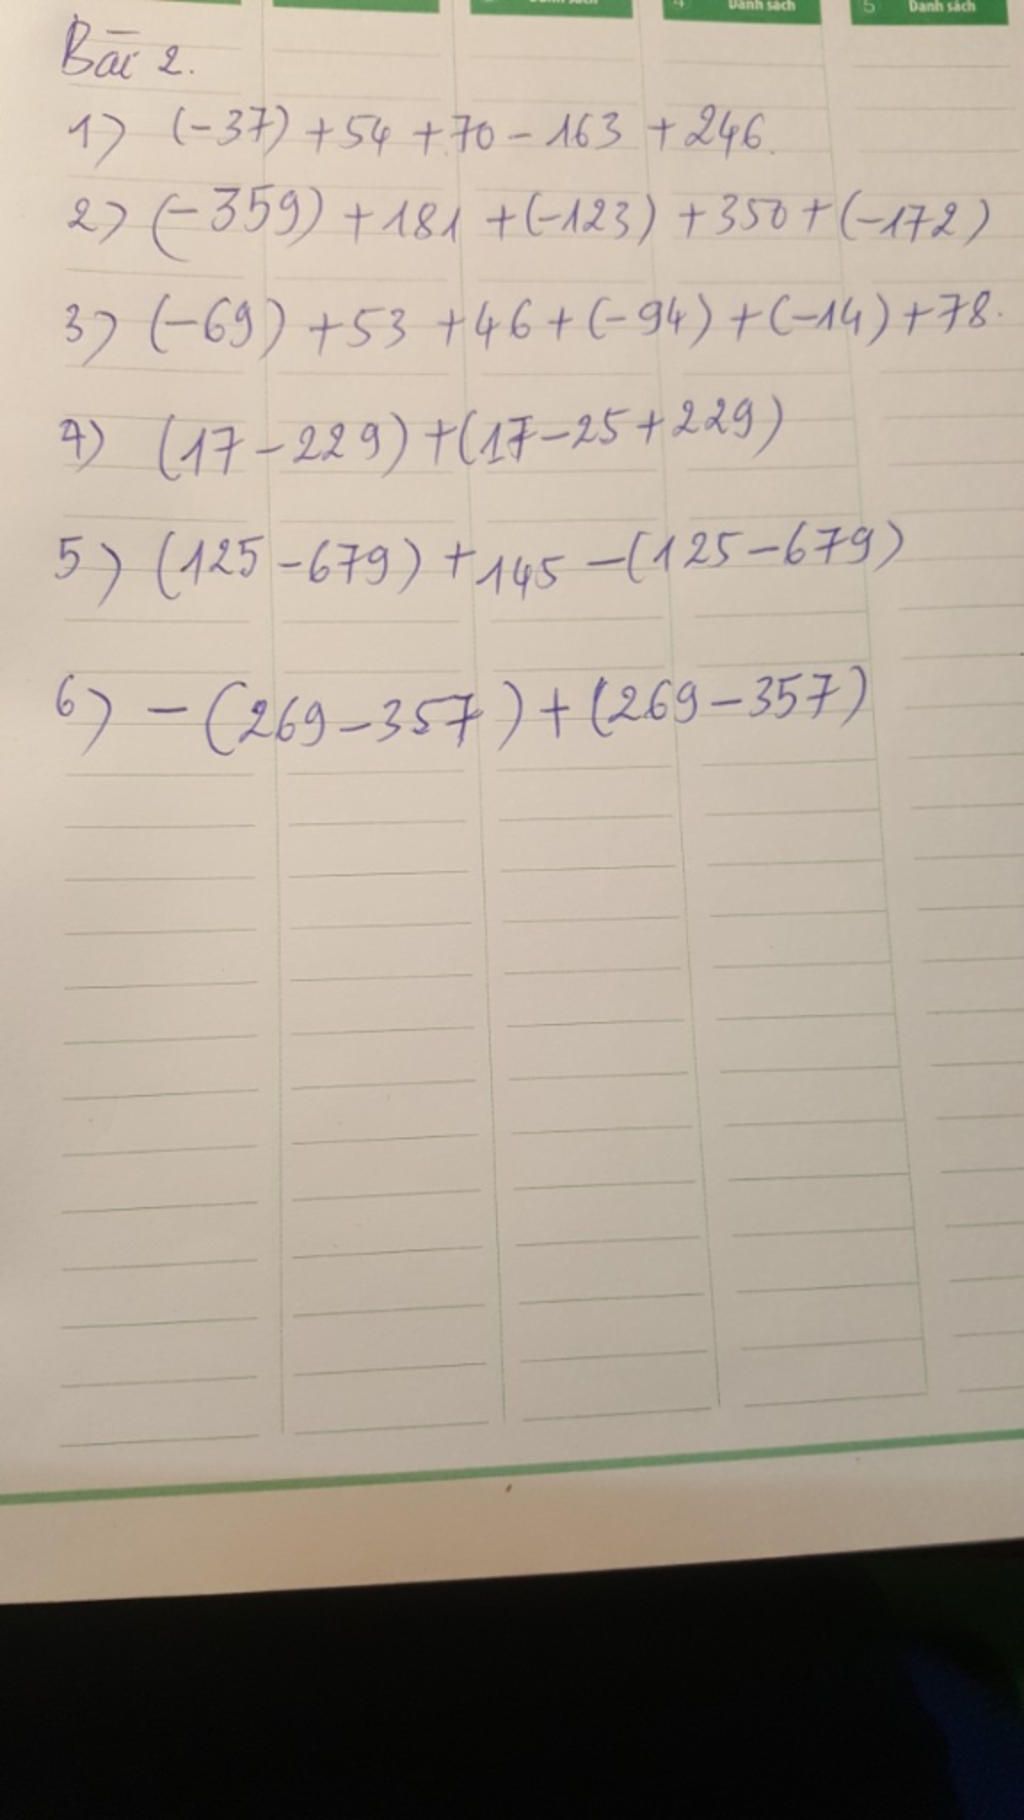 4 Danh sách
5 Danh sách
Bài 2.
1) (-37) + 54 + 70 - 163 + 246.
2) (-359) + 181 + (-123) + 350 + (-172)
3) (-69) + 53 + 46 + (-94) + (-14) + 78.
4) (17 - 229) + (17 - 25 + 229)
5) (125 - 679) + 145 - (125 - 679)
6) - (269 - 357) + (269 - 357)